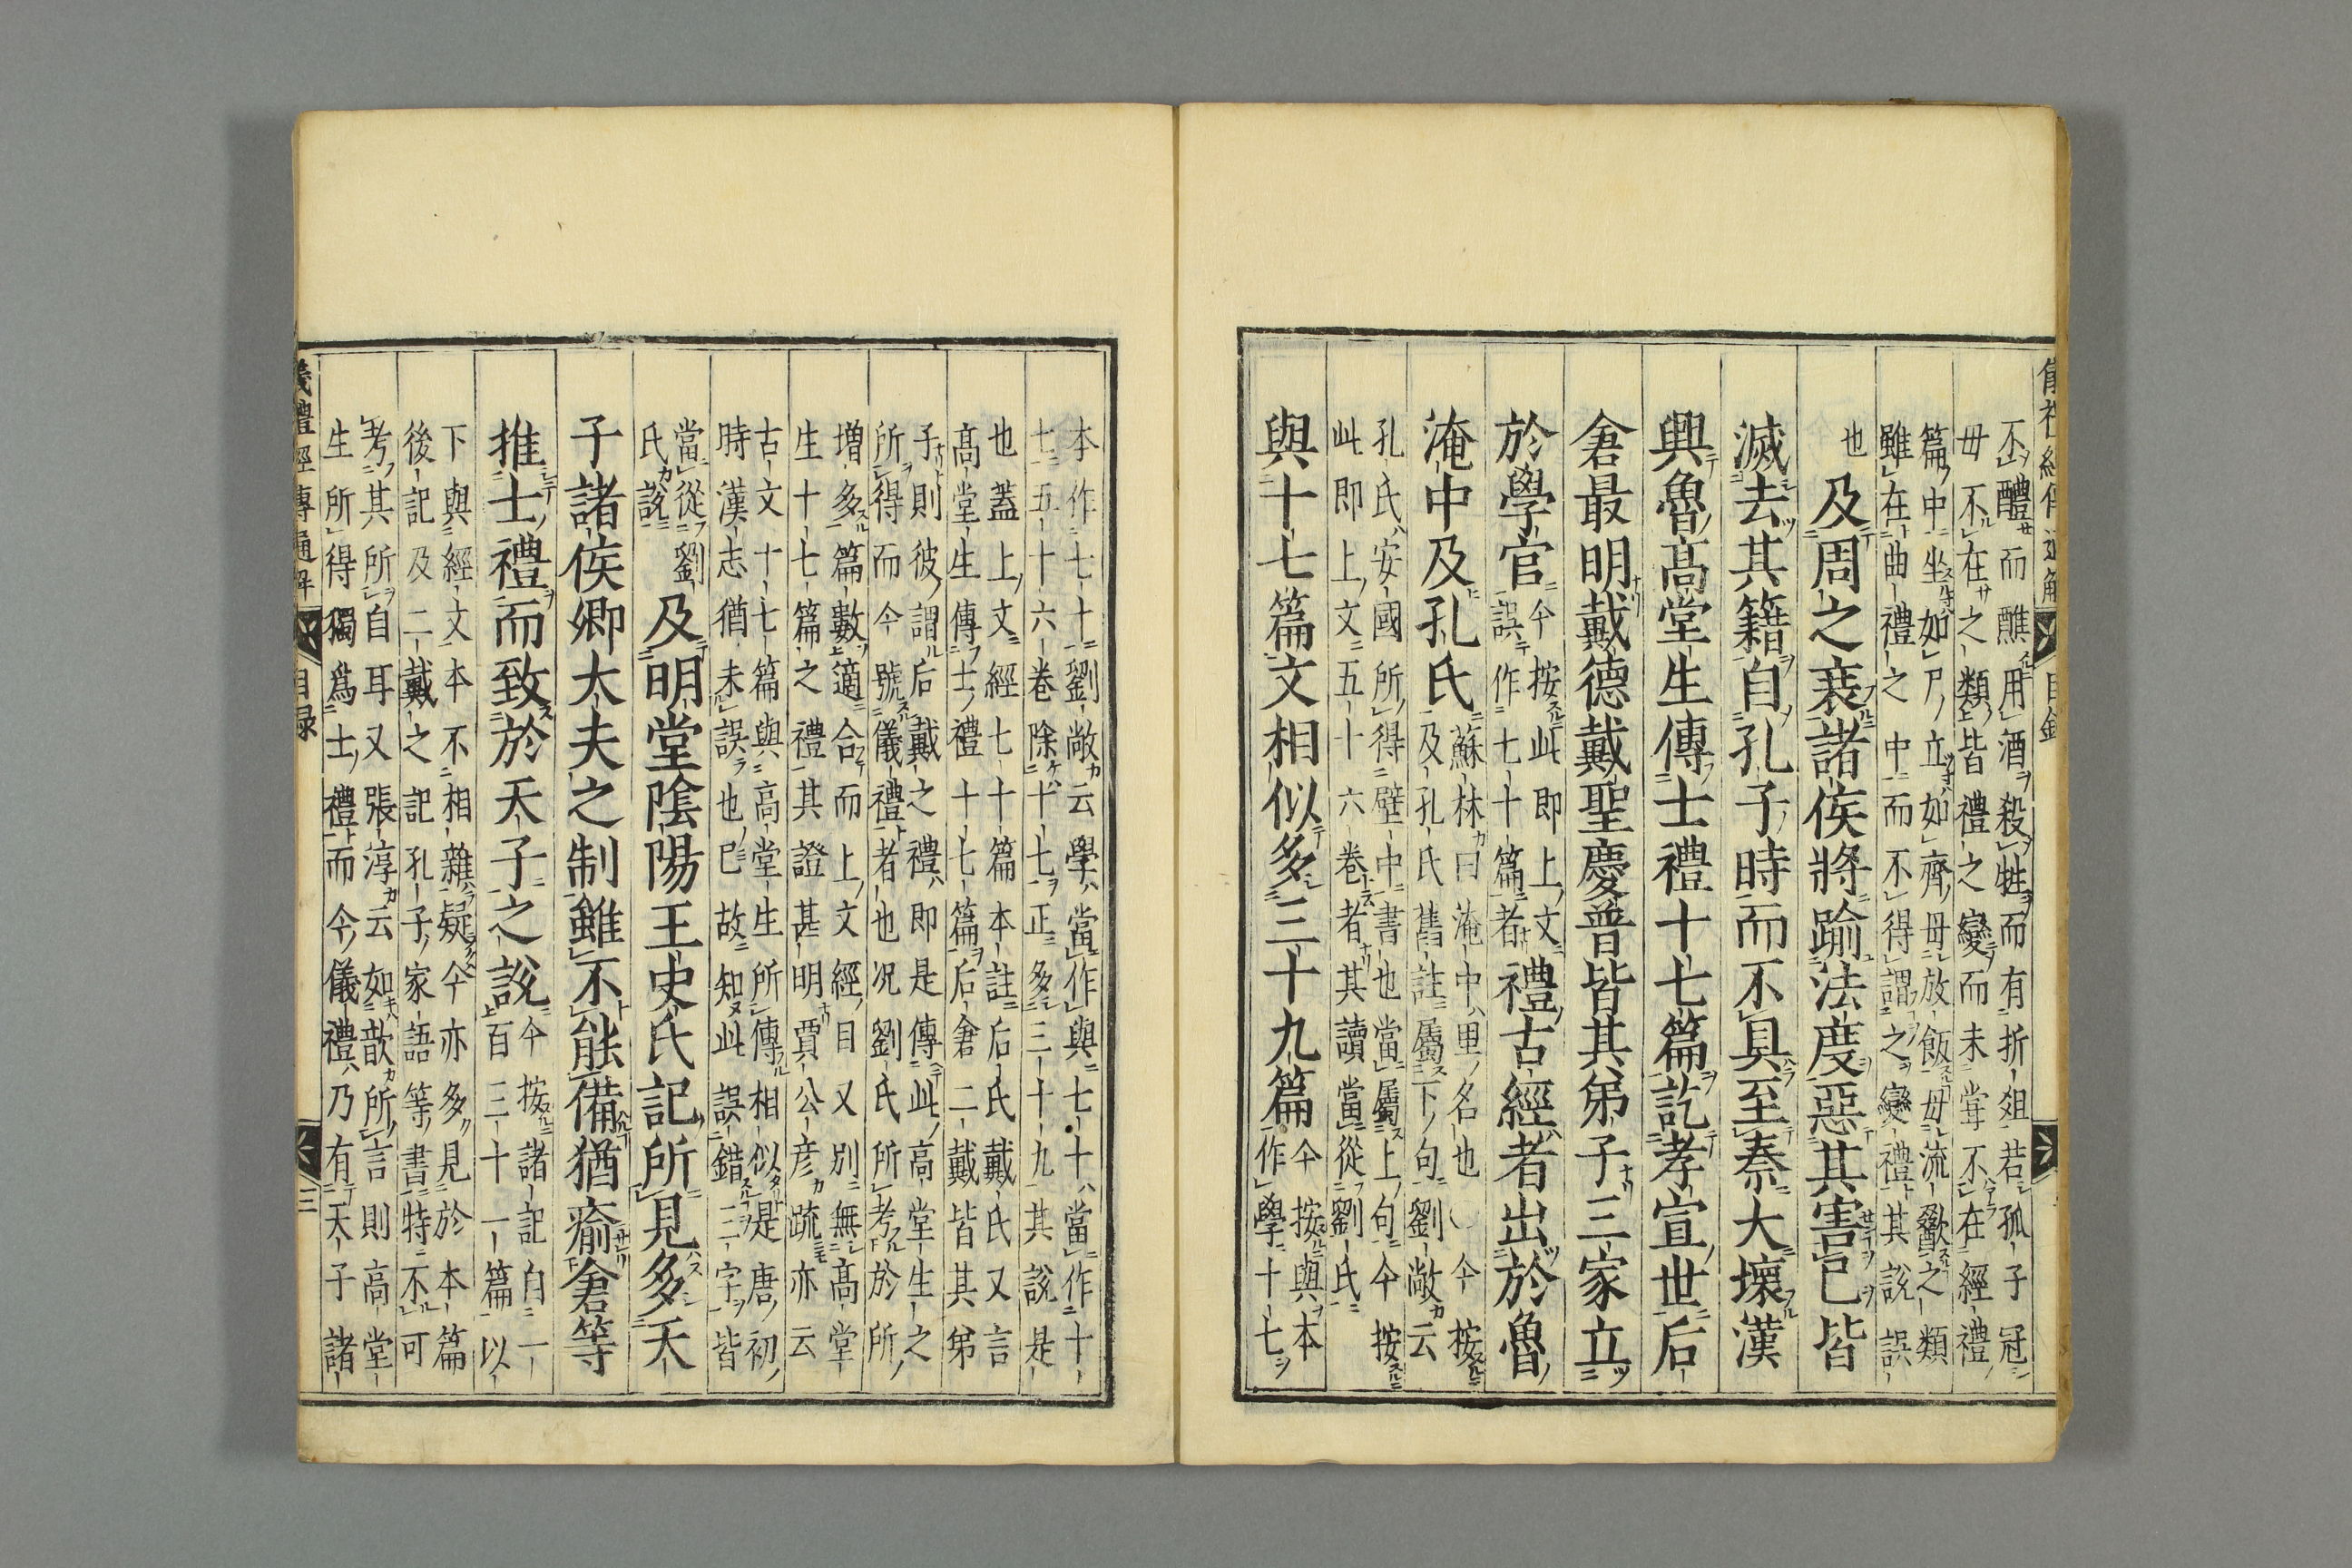 儀禮經傳通解 目錄
不醴而醮用酒殺牲而有折俎若孤子冠
毋不在之類皆禮之變而未嘗不在經禮
篇中坐如尸立如齊毋放飯毋流歠之類
雖在曲禮之中而不得謂之變禮其說誤
也 及周之衰諸侯將踰法度惡其害已皆
滅去其籍自孔子時而不具至秦大壞漢
興魯髙堂生傳士禮十七篇訖孝宣世后
倉最明戴德戴聖慶普皆其弟子三家立
於學官
今按此即上文
誤作七十篇者
禮古經者出於魯
淹中及孔氏
蘇林曰淹中里名也 今按
及孔氏舊註屬下句劉敞云
孔氏安國所得壁中書也當屬上句今按
此即上文五十六卷者其讀當從劉氏
與十七篇文相似多三十九篇
今按與本
作學十七
本作七十劉敞云學當作與七十當作十
七五十六卷除十七正多三十九其說是
也蓋上文經七十篇本註后氏戴氏又言
髙堂生傳士禮十七篇后倉二戴皆其弟
子則彼謂后戴之禮即是傳此高堂生之
所得而今號儀禮者也况劉氏所考於所
増多篇數適合而上文經目又別無髙堂
生十七篇之禮其證甚明賈公彦疏亦云
古文十七篇與高堂生所傳相似是唐初
時漢志猶未誤也已故知此誤錯三字皆
當從劉
氏說
及明堂隂陽王史氏記所見多天
子諸侯卿大夫之制雖不能備猶瘉倉等
推士禮而致於天子之說
今按諸記自一
百三十一篇以
下與經文本不相雜疑今亦多見於本篇
後記及二戴之記孔子家語等書特不可
考其所自耳又張淳云如歆所言則高堂
生所得獨爲士禮而今儀禮乃有天子諸
儀禮經傳通解 目録 三